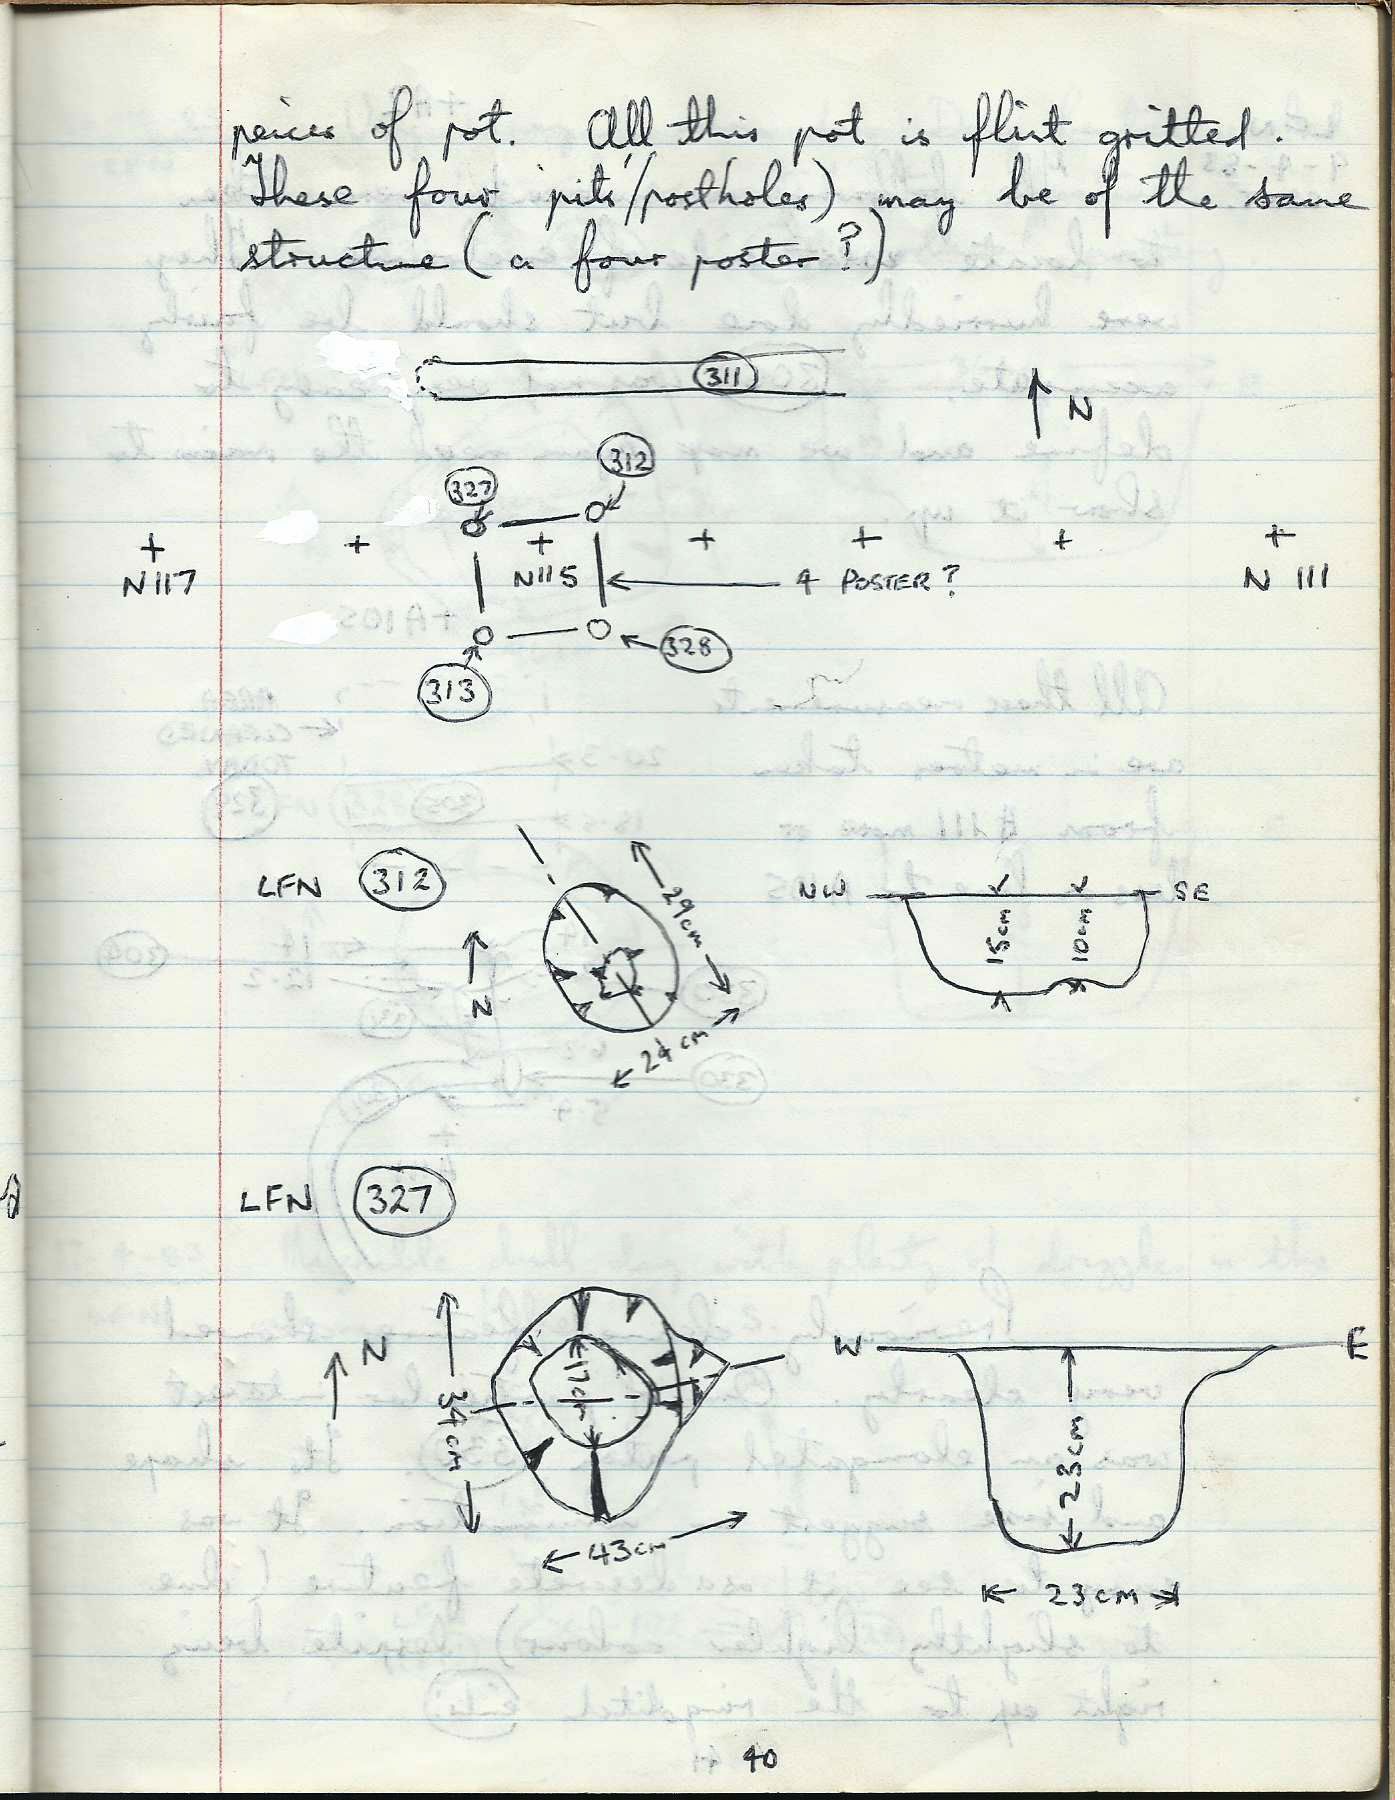 peices of pot. All this pot is flint gritted.
These four pits/postholes) may be of the same
structure (a four poster?)
311
N
312
327
N117
N115
4 POSTER?
N 111
328
313
LFN 312
29cm
N
24cm
NW
SE
15cm
10cm
LFN 327
N
34cm
17cm
43cm
W
E
23cm
23cm
40